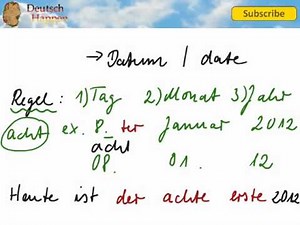 Deutsch
Happen
Subscribe
→ Datum / date
Regel: 1) Tag 2) Monat 3) Jahr
acht ex. 8. ter Januar 2012
acht
08. 01. 12
Heute ist der achte erste 2012